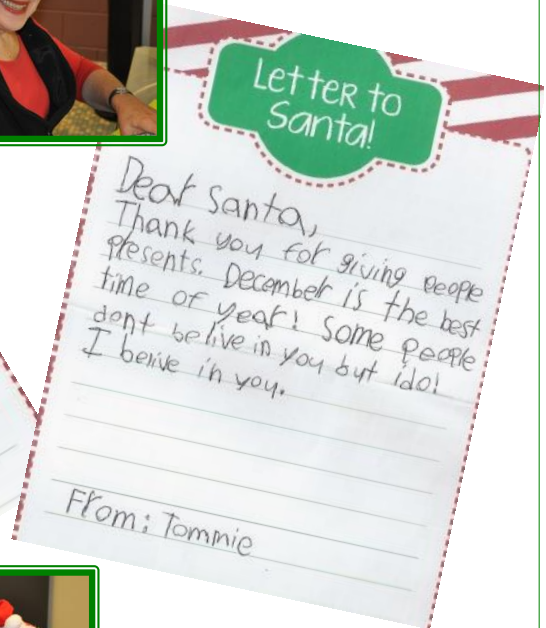 Letter to
Santa!
Dear Santa,
Thank you for giving people
presents. December is the best
time of year! Some people
dont belive in you but ido!
I belive in you.
From: Tommie